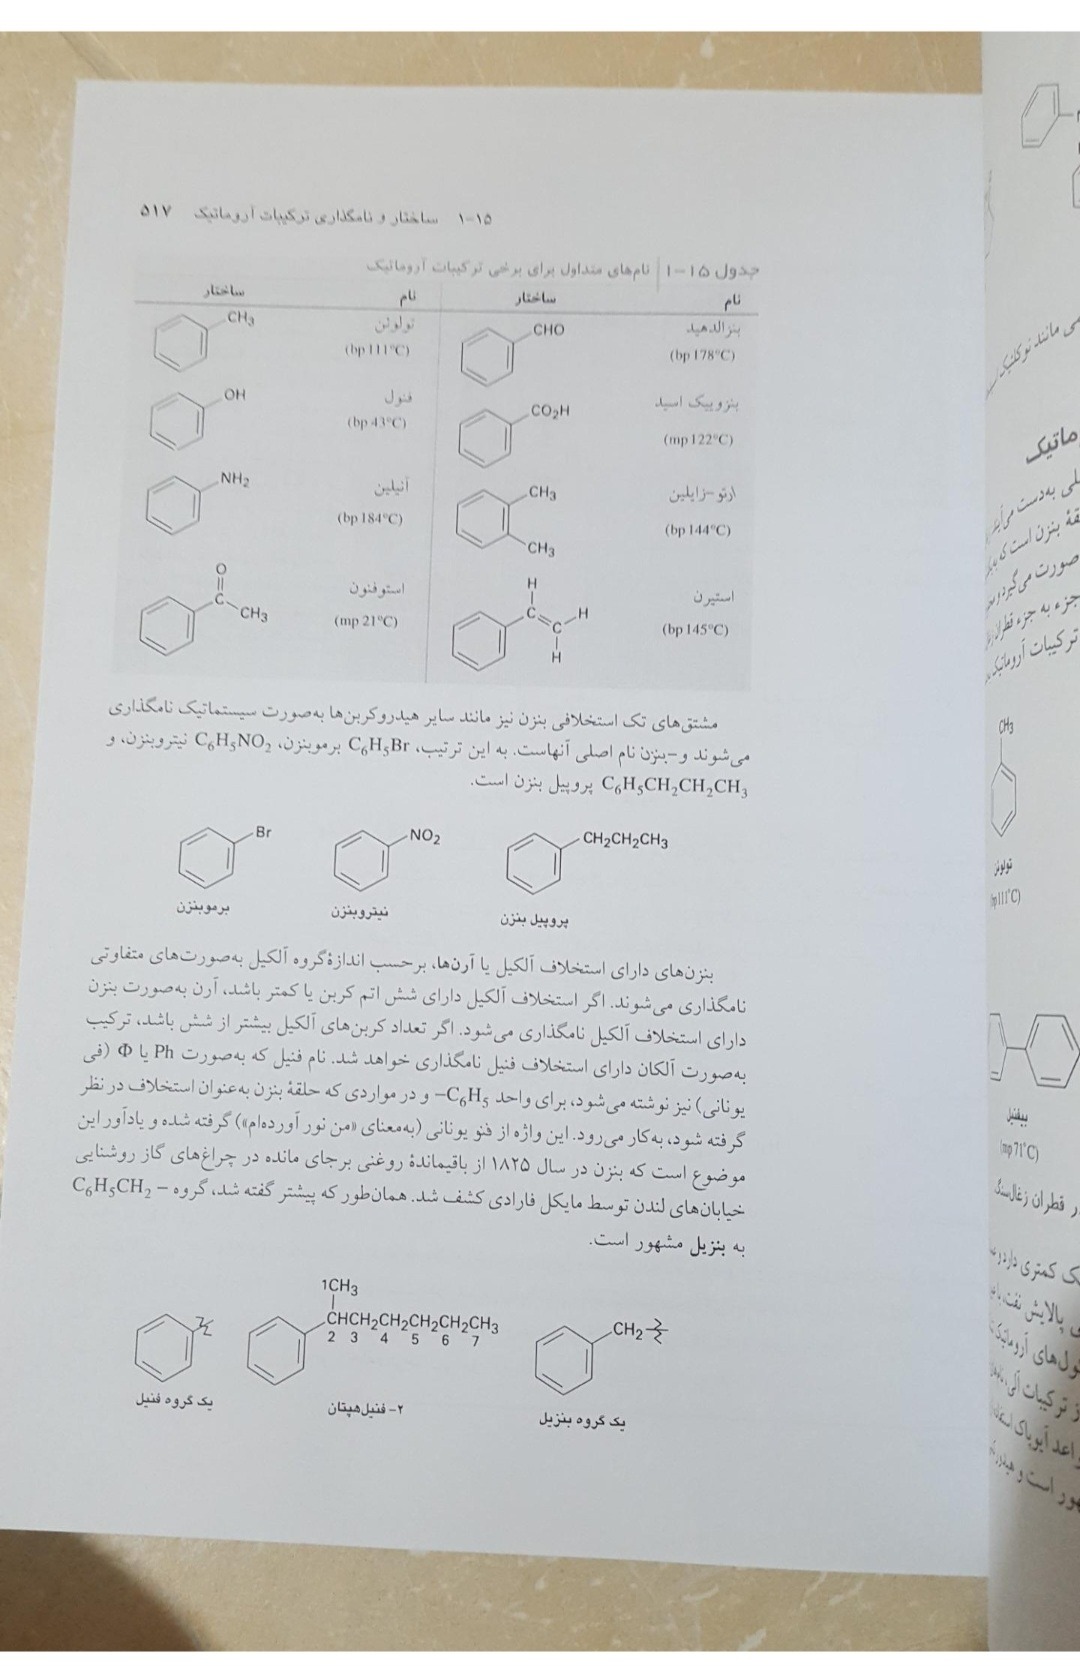 ۱-۱۵ ساختار و نامگذاری ترکیبات آروماتیک ۵۱۷
جدول ۱۵-۱ نام‌های متداول برای برخی ترکیبات آروماتیک
نام ساختار نام ساختار
بنزالدهید CHO تولوئن CH₃
(bp 178°C) (bp 111°C)
بنزوییک اسید CO₂H فنول OH
(mp 122°C) (bp 43°C)
ارتو-زایلین CH₃ آنیلین NH₂
(bp 144°C) CH₃ (bp 184°C)
استیرن H C C H H استوفنون O C CH₃
(bp 145°C) (mp 21°C)
مشتق‌های تک استخلافی بنزن نیز مانند سایر هیدروکربن‌ها به‌صورت سیستماتیک نامگذاری
می‌شوند و -بنزن نام اصلی آنهاست. به این ترتیب، C₆H₅Br برموبنزن، C₆H₅NO₂ نیتروبنزن، و
C₆H₅CH₂CH₂CH₃ پروپیل بنزن است.
Br NO₂ CH₂CH₂CH₃
برموبنزن نیتروبنزن پروپیل بنزن
بنزن‌های دارای استخلاف آلکیل یا آرن‌ها، برحسب اندازهٔ گروه آلکیل به‌صورت‌های متفاوتی
نامگذاری می‌شوند. اگر استخلاف آلکیل دارای شش اتم کربن یا کمتر باشد، آرن به‌صورت بنزن
دارای استخلاف آلکیل نامگذاری می‌شود. اگر تعداد کربن‌های آلکیل بیشتر از شش باشد، ترکیب
به‌صورت آلکان دارای استخلاف فنیل نامگذاری خواهد شد. نام فنیل که به‌صورت Ph یا Φ (فی
یونانی) نیز نوشته می‌شود، برای واحد C₆H₅– و در مواردی که حلقهٔ بنزن به‌عنوان استخلاف در نظر
گرفته شود، به‌کار می‌رود. این واژه از فنو یونانی (به‌معنای «من نور آورده‌ام») گرفته شده و یادآور این
موضوع است که بنزن در سال ۱۸۲۵ از باقیماندهٔ روغنی برجای مانده در چراغ‌های گاز روشنایی
خیابان‌های لندن توسط مایکل فارادی کشف شد. همان‌طور که پیشتر گفته شد، گروه C₆H₅CH₂ –
به بنزیل مشهور است.
1CH₃
CHCH₂CH₂CH₂CH₂CH₃ CH₂
2 3 4 5 6 7
یک گروه فنیل ۲- فنیل‌هپتان یک گروه بنزیل
CH₃
تولوئن
بیفنیل
(mp 71°C)